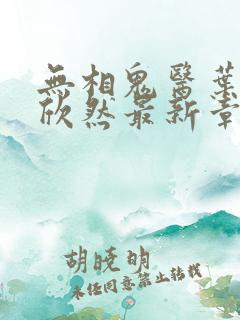 無相鬼醫葉
欣然最新章
胡曉明
未经同意禁止转载